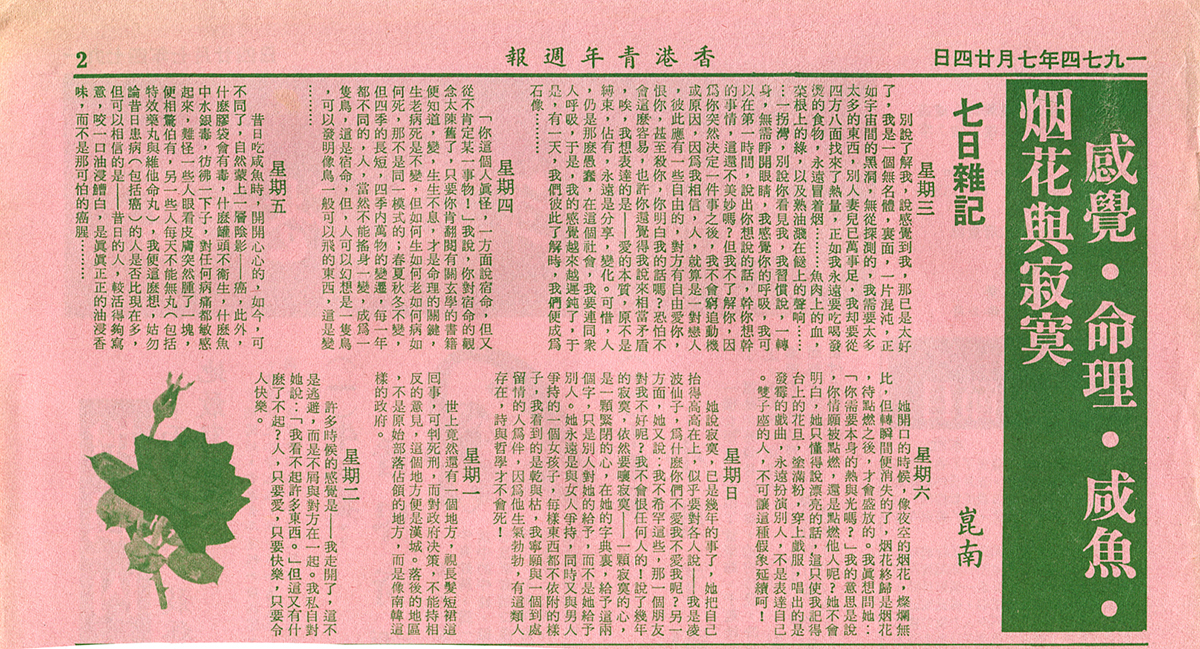 一九七四年七月廿四日
香港青年週報
2
感覺・命理・咸魚・
烟花與寂寞
七日雜記
崑南
星期三
別說了解我，說感覺到我，那已是太好
了，我是一個無名體，裏面，一片混沌，正
如宇宙間的黑洞，無從探測的，我需要太多
太多的東西，別人妻兒已萬事足，我却要從
四方八面找來了熱量，正如我永遠要吃喝發
燙的食物，永遠冒着烟……魚肉上的血，
菜根上的綠，以及熟油濺在鎚上的聲响……
…一拐灣，別說你看見我，我習慣說，一轉
身，無需睜開眼睛，我感覺你的呼吸，我可
以在第一時間，說出你想說的話，幹你想幹
的事情，這還不美妙嗎？但我不了解你，因
爲你突然決定一件事之後，我不會窮追動機
或原因，因爲我相信，人，就算是一對戀人
，彼此應有一些自由的，對方有自由愛你，
恨你，甚至殺你，你明白我的話嗎？恐怕不
會這麼容易，也許你還覺得我說來相當矛盾
，唉，我想表達的是——愛的本質，原不是
縛束，佔有，永遠是分享，變化。可惜，人
，仍是那麼愚蠢，在這個社會，我要連同衆
人呼吸，于是，我的感覺越來越遲鈍了，于
是，有一天，我們彼此了解時，我們便成爲
石像……
星期四
「你這個人眞怪，一方面說宿命，但又
從不肯定某一事物！」我說，你對宿命的觀
念太陳舊了，只要你肯翻閱有關玄學的書籍
便知道，變，生生不息，才是命理的關鍵，
生老病死是不變，但如何生如何老如何病如
何死，那不是同一模式的；春夏秋冬不變，
但四季的長短，四季內萬物的變遷，每一年
都不同的，人，當然不能搖身一變，成爲一
隻鳥，這是宿命，但，人可以幻想是一隻鳥
，可以發明像鳥一般可以飛的東西，這是變
……
星期五
昔日吃咸魚時，開開心心的，如今，可
不同了，自然蒙上一層陰影——癌，此外，
什麼膠袋會有毒，什麼罐頭不衛生，什麼魚
中水銀毒，彷彿一下子，對任何病痛都敏感
起來，難怪一些人眼看皮膚突然腫了一塊，
便相驚伯有，另一些人每天不能無丸（包括
特效藥丸與維他命丸），我便這麼想，姑勿
論昔日患病（包括癌）的人是否比現在多，
但可以相信的是——昔日的人，較活得夠寫
意，咬一口油浸鰽白，是眞眞正正的油浸香
味，而不是那可怕的癌腥……
星期六
她開口的時候，像夜空的烟花，燦爛無
比，但轉瞬間便消失的了，烟花終歸是烟花
，待點燃之後，才會盛放的。我眞想問她：
「你需要本身的熱與光嗎？」我的意思是說
，你情願被點燃，還是點燃他人呢？她不會
明白，她只懂得說漂亮的話，這只使我記得
台上的花旦，塗滿粉，穿上戲服，唱出的是
發霉的戲曲，永遠扮演別人，不是表達自己
。雙子座的人，不可讓這種假象延續呵！
星期日
她說寂寞，已是幾年的事了，她把自己
抬得高高在上，似乎要對各人說——我是凌
波仙子，爲什麼你們不愛我不愛我呢？另一
方面，她又說：我不希罕這些，那一個朋友
對我不好呢？我不會恨任何人的！說了幾年
的寂寞，依然要嚷寂寞——一顆寂寞的心，
是一顆緊閉的心，在她的字典裏，給予這兩
個字，只是別人對她的給予，而不是她給予
別人。她永遠是與女人爭持，同時又與男人
爭持的一個女孩子，每樣東西都不依附的樣
子，我看到的是乾與枯，我寧願與一個到處
留情的人爲伴，因爲他生氣勃勃，有這類人
存在，詩與哲學才不會死！
星期一
世上竟然還有一個地方，視長髮短裙這
囘事，可判死刑，而對政府決策，不能持相
反的意見，這個地方便是漢城。落後的地區
，不是原始部落佔領的地方，而是像南韓這
樣的政府。
星期二
許多時候的感覺是——我走開了，這不
是逃避，而是不屑與對方在一起。我私自對
她說：「我看不起許多東西。」但這又有什
麼了不起？人，只要愛，只要快樂，只要令
人快樂。